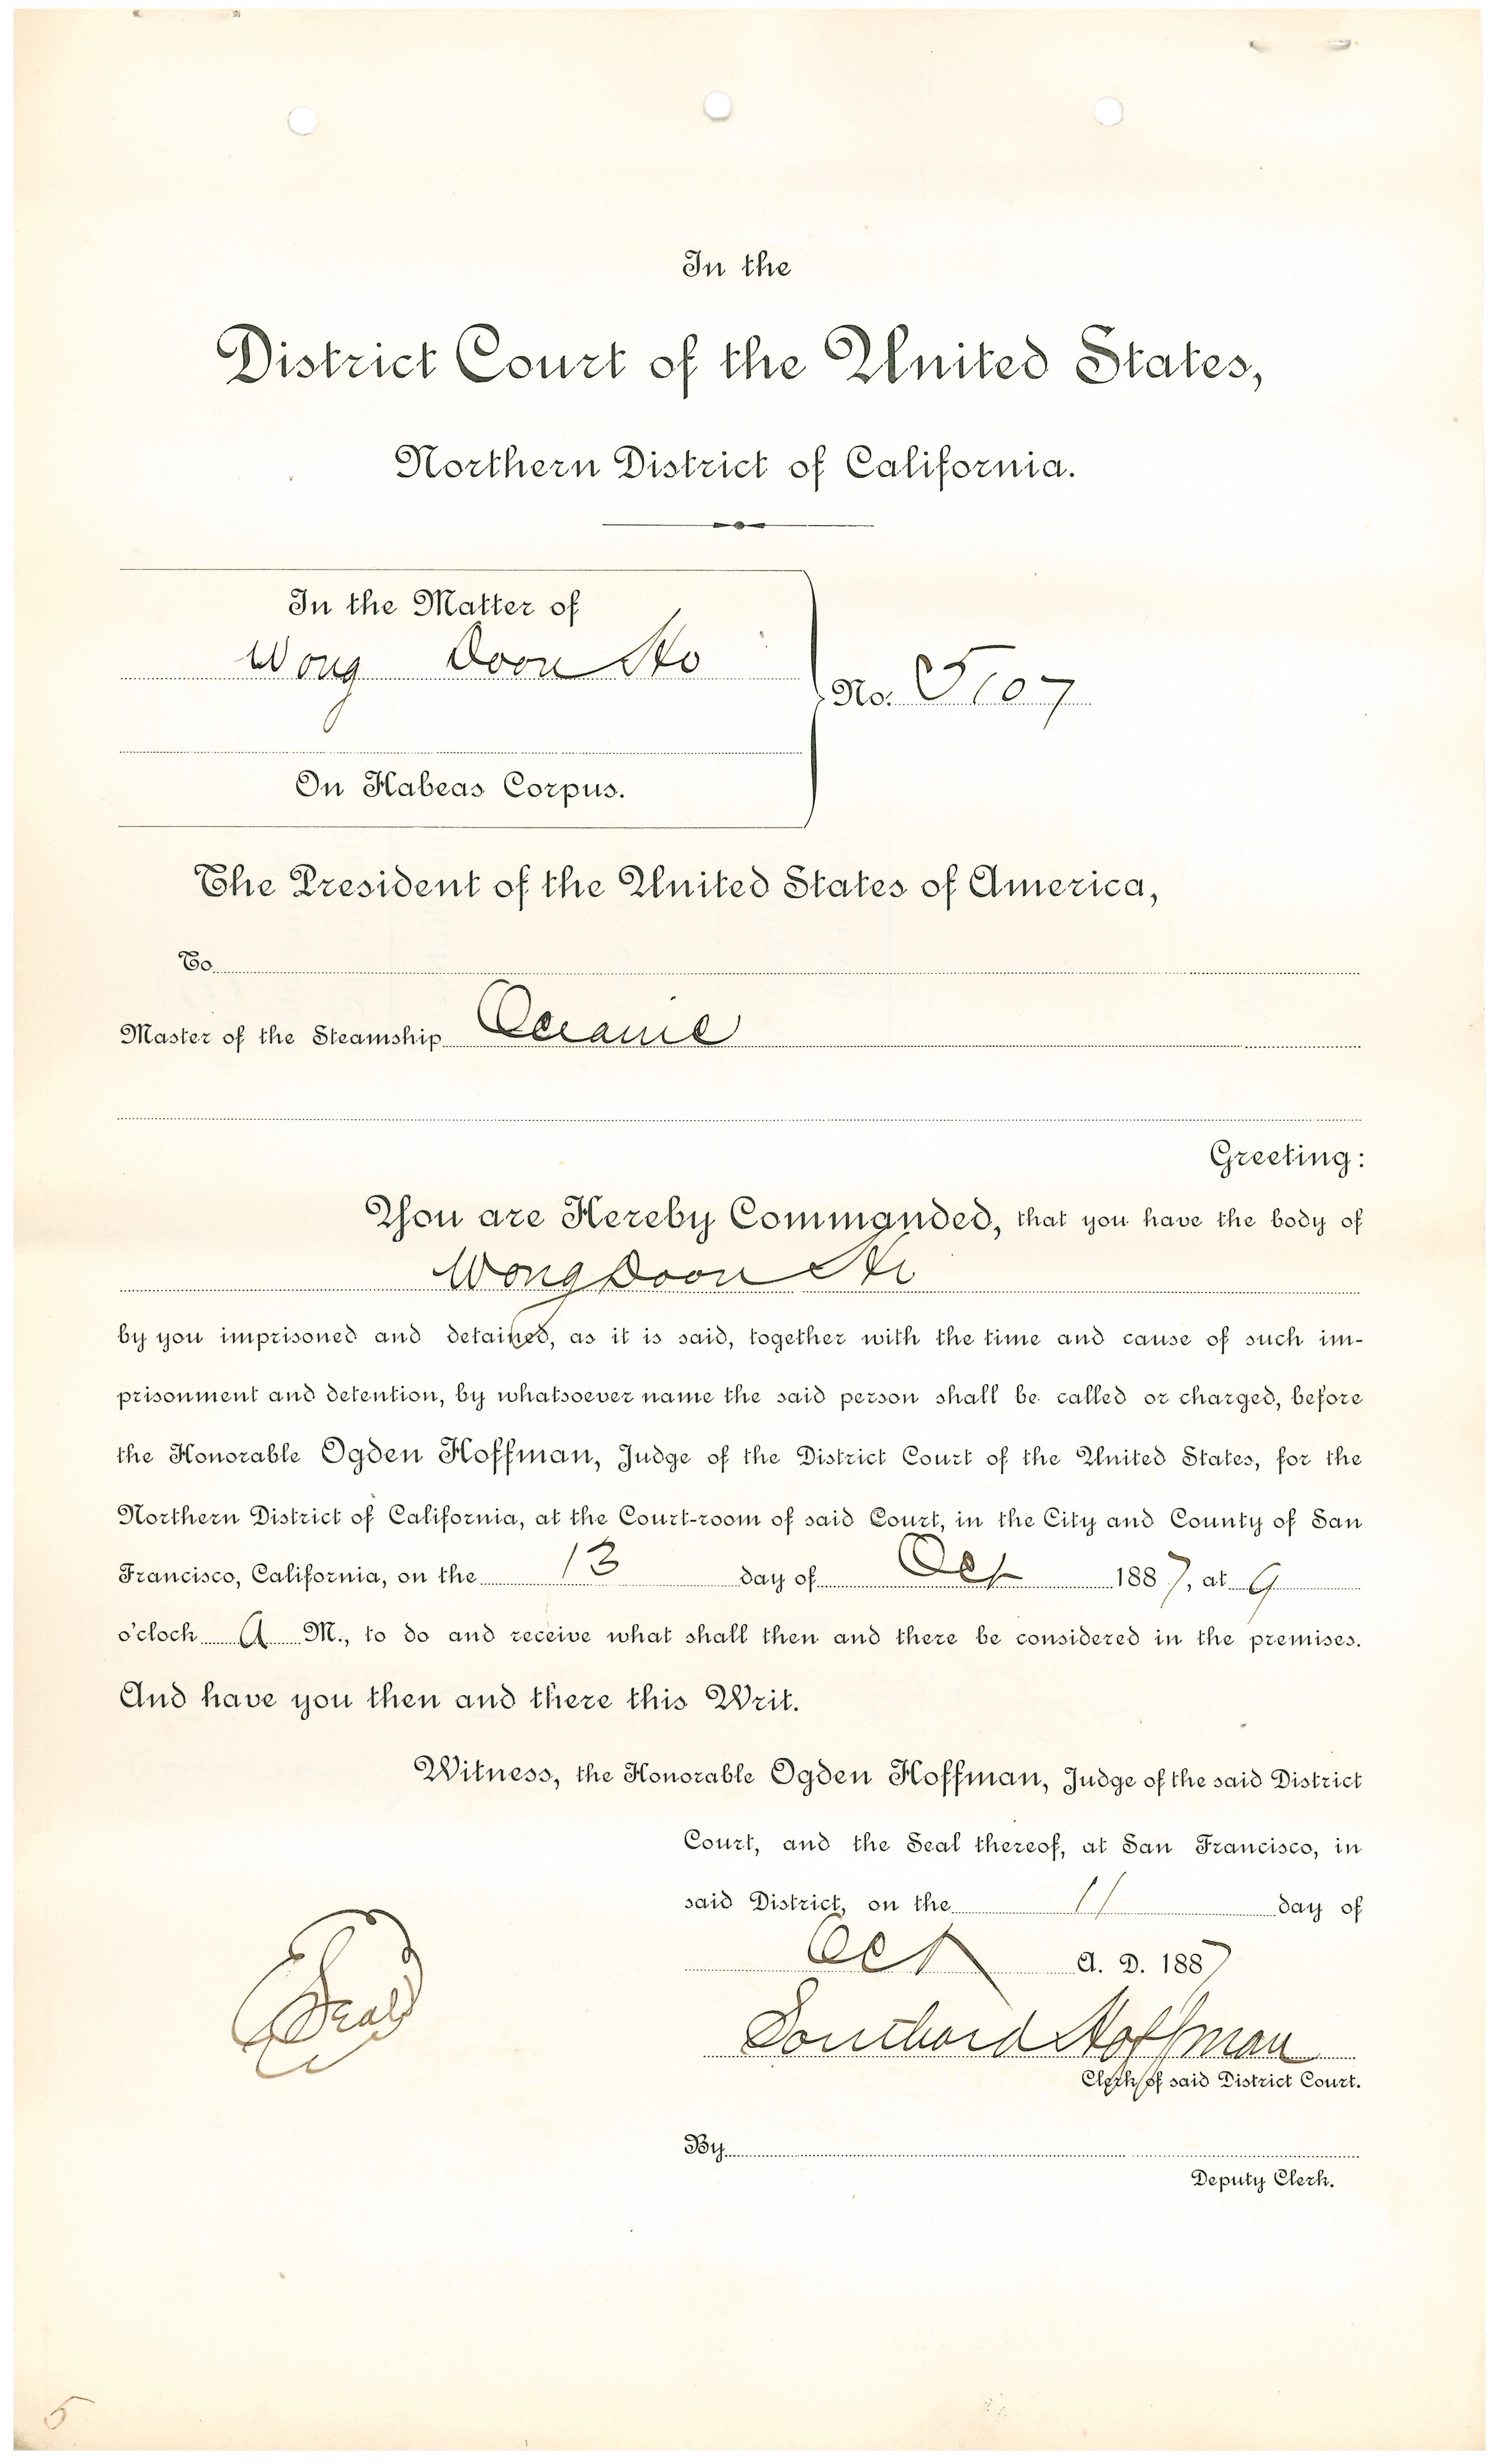 In the
District Court of the United States,
Northern District of California.
In the Matter of
Wong Doon Ho
No. 5107
On Habeas Corpus.
The President of the United States of America,
To
Master of the Steamship Oceanic
Greeting:
You are Hereby Commanded, that you have the body of
Wong Doon Ho
by you imprisoned and detained, as it is said, together with the time and cause of such im-
prisonment and detention, by whatsoever name the said person shall be called or charged, before
the Honorable Ogden Hoffman, Judge of the District Court of the United States, for the
Northern District of California, at the Court-room of said Court, in the City and County of San
Francisco, California, on the 13 day of Oct 1887, at 9
o'clock A M., to do and receive what shall then and there be considered in the premises.
And have you then and there this Writ.
Witness, the Honorable Ogden Hoffman, Judge of the said District
Court, and the Seal thereof, at San Francisco, in
said District, on the 11 day of
Oct A. D. 1887
Seal
Southard Hoffman
Clerk of said District Court.
By
Deputy Clerk.
5